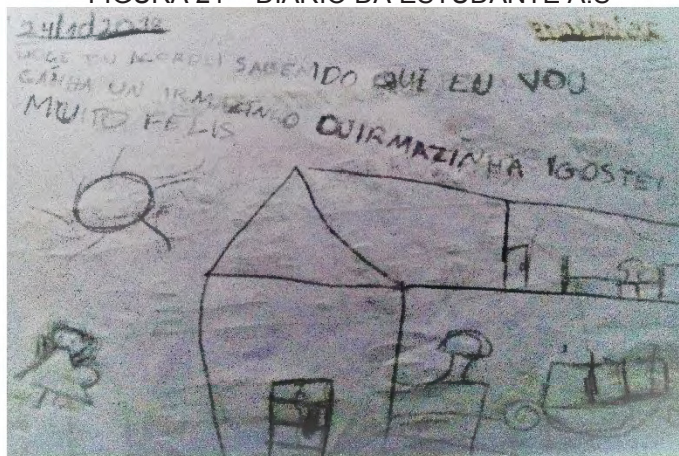 FIGURA 21 – DIÁRIO DA ESTUDANTE A.S
24/10/2018
SABENDO QUI EU VOU
GANHA UN IRMAZINGO OUIRMAZINHA IGOSTEI
MUITO FELIS